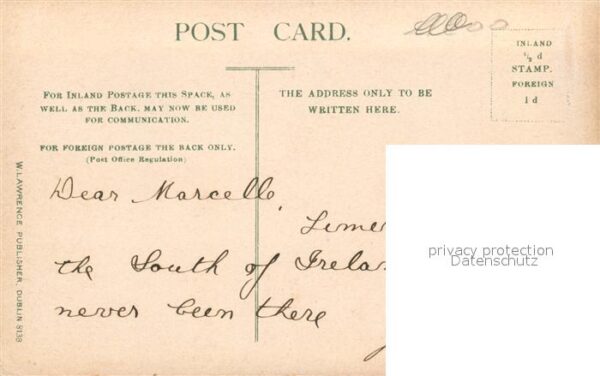 POST CARD.
INLAND
½ d
STAMP.
FOREIGN
1 d
FOR INLAND POSTAGE THIS SPACE, AS
WELL AS THE BACK, MAY NOW BE USED
FOR COMMUNICATION.
FOR FOREIGN POSTAGE THE BACK ONLY.
(Post Office Regulation)
THE ADDRESS ONLY TO BE
WRITTEN HERE.
W. LAWRENCE, PUBLISHER, DUBLIN 8138
Dear Marcelle,
Limer
the South of Irelan
never been there
privacy protection
Datenschutz